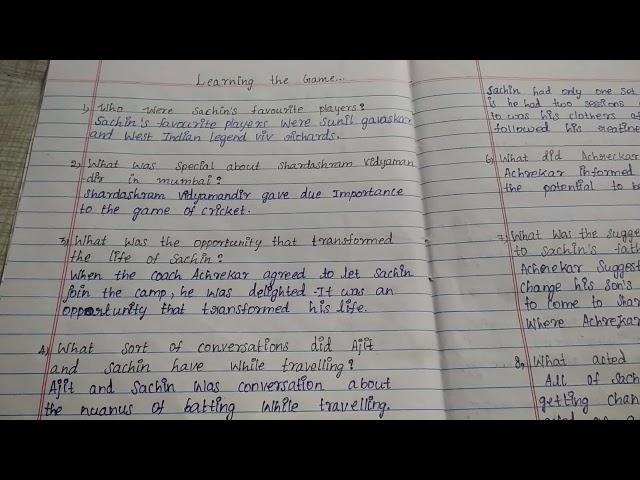 Learning the Game...
1) Who were Sachin's favourite players?
Sachin's favourite players were Sunil gavaskar
and West Indian legend viv richards.
2) What was special about shardashram vidyaman
dir in mumbai?
Shardashram vidyamandir gave due Importance
to the game of cricket.
3) What was the opportunity that transformed
the life of Sachin?
When the coach Achrekar agreed to let Sachin
join the camp, he was delighted. It was an
opportunity that transformed his life.
4) What sort of conversations did Ajit
and sachin have while travelling?
Ajit and Sachin was conversation about
the nuanus of batting while travelling.
Sachin had only one set
is he had two sessions
to was his clothers
followed his
6) What did
Achrekar informed
the potential to
7) What was the
to sachin's
Achrekar
change his son's
to come to
Where
8) What acted
All of
getting